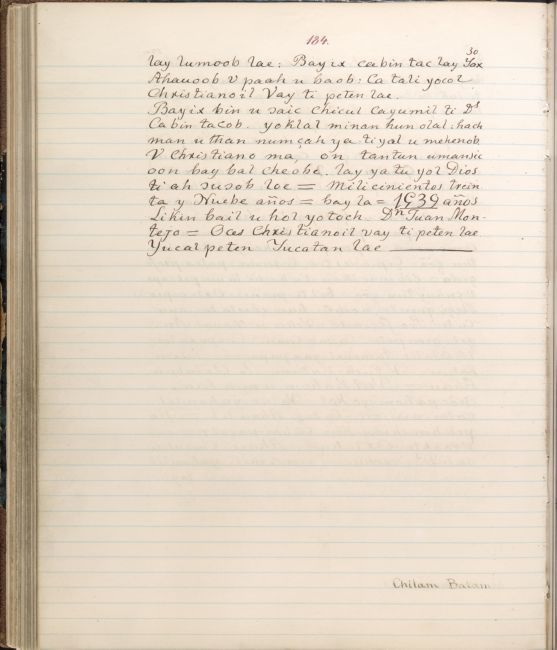 184.
30
lay lumoob lae: Bay ix cabin tac lay Fox
Ahauoob V paah u baob: Ca tali yocol
Christianoil Vay ti peten lae.
Bayix bin u saic chicul cayumil ti Ds
Ca bin tacob. yoklal minan hun olal: hach
man u than numçah ya ti yal u mehenob
V Christiano ma, on tantun umansic
oon bay bal cheobe. lay ya tu yol Dios
ti ah loe = Milicinientos trein
ta y Nuebe años = bay la = 1539 años
Likin bail u hol yotoch. Dn Juan Mon-
tejo = Oces Christianoil vay ti peten lae
Yucal peten Yucatan lae
Chilam Balam